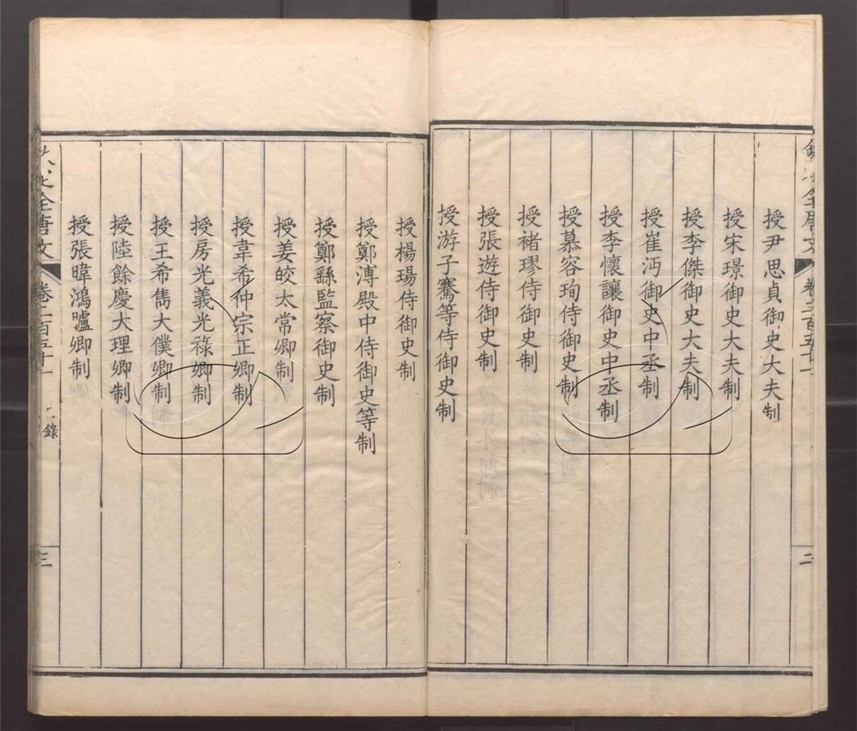 授尹思貞御史大夫制
授宋璟御史大夫制
授李傑御史大夫制
授崔沔御史中丞制
授李懷讓御史中丞制
授慕容珣侍御史制
授褚璆侍御史制
授張遊侍御史制
授游子騫等侍御史制
授楊瑒侍御史制
授鄭溥殿中侍御史等制
授鄭繇監察御史制
授姜皎太常卿制
授韋希仲宗正卿制
授房光義光祿卿制
授王希雋大僕卿制
授陸餘慶大理卿制
授張暐鴻臚卿制
全唐文
卷二百五十一
二
全唐文
卷二百五十一
錄
三